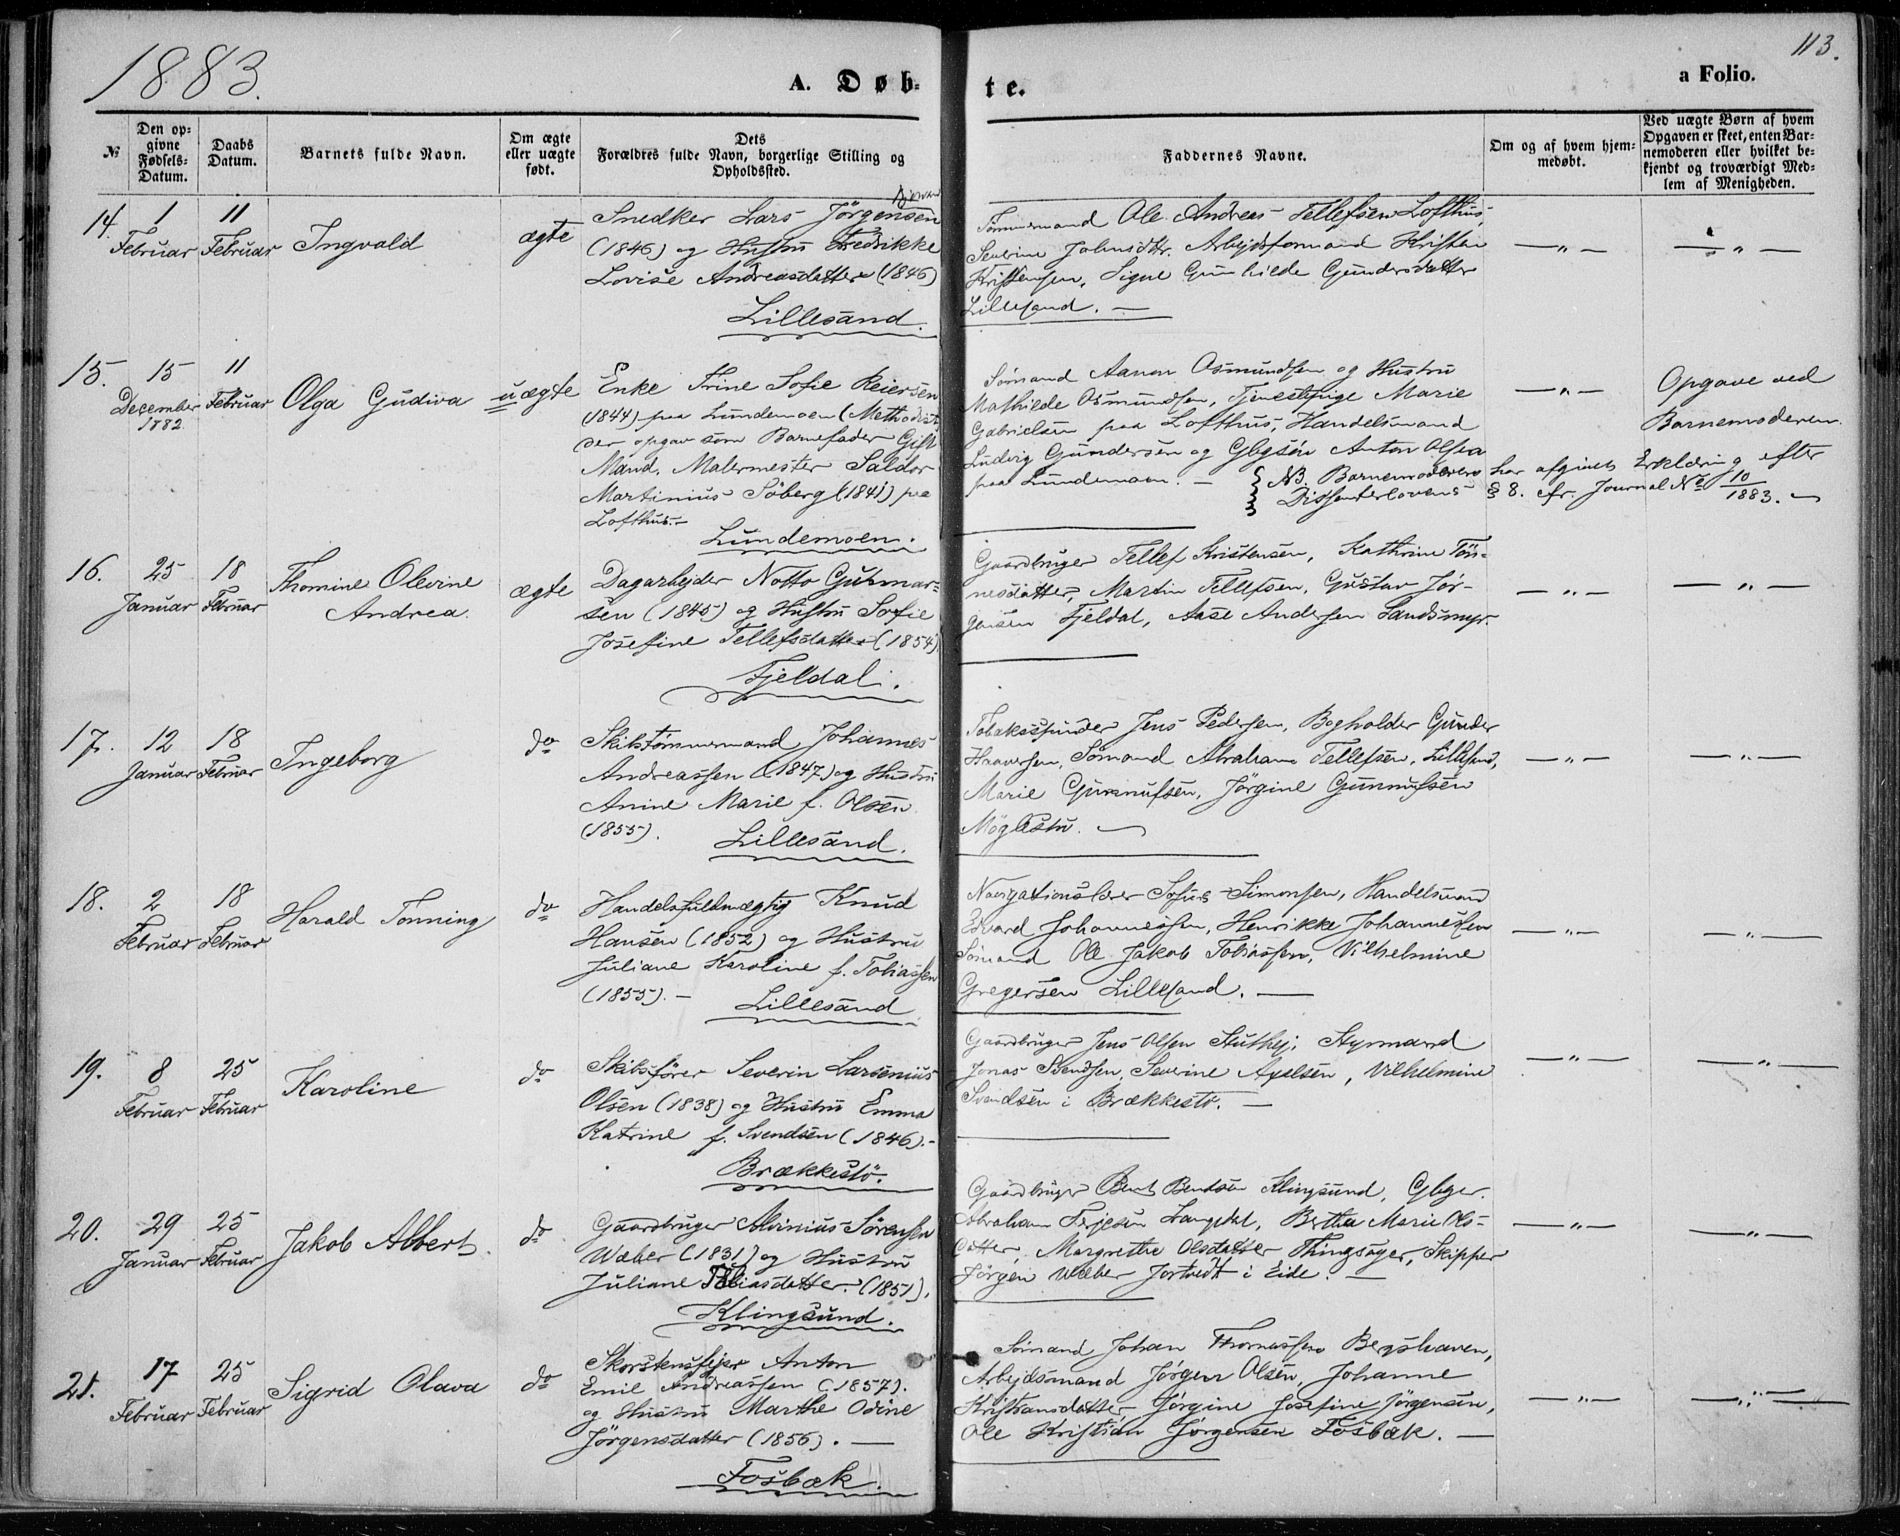 1883.
A. Døb-
te.
113.
a Folio.
№
Den op-
givne
Fødsels-
Datum.
Daabs
Datum.
Barnets fulde Navn.
Om ægte
eller uægte
født.
Dets
Forældres fulde Navn, borgerlige Stilling og
Opholdssted.
Faddernes Navne.
Om og af hvem hjem-
medøbt.
Ved uægte Børn af hvem
Opgaven er skeet, enten Bar-
nemoderen eller hvilket be-
kjendt og troværdigt Med-
lem af Menigheden.
14. 1 Februar 11 Februar Ingvald ægte
Snedker Lars Jörgensen
(1846) og Hustru Fredrikke
Lovise Andreasdatter (1846)
Lillesand.
Tømmermand Ole Andreas Tellefsen Lofthus,
Severine Johnsdtr. Arbejdsformand Kristen
Kristensen, Signe Gunhilde Gundersdatter
Lillesand. —
— „ — — „ —
15. 15 December 1882 11 Februar Olga Gudiva uægte
Enke Trine Sofie Reiersen
(1844) paa Lundemoen (Methodist)
der opgav som Barnefader Gift
Mand, Malermester Saldor
Martinius Söberg (1841) paa
Lofthus.—
Lundemoen.
Sømand Aanon Osmundsen og Hustru
Mathilde Osmundsen, Tjenestepige Marie
Gabrielsen paa Lofthus, Handelsmand
Ludvig Gundersen og Gbgsön Anton Olsen
paa Lundemoen. —
— „ —
Opgave ved
Barnemoderen.
NB. Barnemoderen har afgivet Erklæring efter
Dissenterlovens § 8. cfr. Journal № 10/1883. —
16. 25 Januar 18 Februar Thomine Olevine
Andrea. ægte
Dagarbejder Notto Gutmar-
sen (1845) og Hustru Sofie
Josefine Tellefsdatter (1854)
Fjeldal.
Gaardbruger Tellef Kristensen, Kathrine Tön-
nesdatter, Martin Tellefsen, Gustav Jör-
gensen Fjeldal, Aase Andersen Sandsmyr
— „ — — „ —
17. 12 Januar 18 Februar Ingeborg do
Skibstømmermand Johannes
Andreassen (1847) og Hustru
Anine Marie f. Olsen
(1855). Lillesand.
Tobaksspinder Jens Pedersen, Bogholder Gunder
Haaversen, Sømand Abraham Tellefsen, Lillesand,
Marie Gunnufsen, Jørgine Gunnufsen
Møglestu. —
— „ — — „ —
18. 2 Februar 18 Februar Harald Tonning do
Handelsfuldmægtig Knud
Hansen (1852) og Hustru
Juliane Karoline f. Tobiassen
(1855). — Lillesand.
Navigationslærer Sofus Simonsen, Handelsmand
Edvard Johannessen, Henrikke Johannessen
Sømand Ole Jakob Tobiassen, Vilhelmine
Gregersen Lillesand. —
— „ — — „ —
19. 8 Februar 25 Februar Karoline do
Skibsfører Severin Larsenius
Olsen (1838) og Hustru Emma
Katrine f. Svendsen (1846).-
Brækkestö.
Gaardbruger Jens Olsen Stuthej, Styrmand
Jonas Svendsen, Severine Axelsen, Vilhelmine
Svendsen i Brækkestø. —
— „ — — „ —
20. 29 Januar 25 Februar Jakob Albert. do
Gaardbruger Alvinius Sörensen
Wæber (1831) og Hustru
Juliane Tobiasdatter. (1851).
Klingsund.
Gaardbruger Bent Bendsen Klingsund, Gbger.
Abraham Terjesen Langdal, Berthe Marie Ols-
datter, Margrethe Olsdatter Thingsager, Skipper
Jörgen Wæber Jortvedt i Eide. —
— „ — — „ —
21. 17 Februar 25 Februar Sigrid Olava do
Skorstensfejer Anton
Emil Andreassen (1857).
og Hustru Marthe Odine
Jörgensdatter (1856). —
Fosbæk.
Sømand Johan Thomassen Bergshaven,
Arbejdsmand Jørgen Olsen, Johanne
Kristiansdatter Jörgine Josefine Jörgensen,
Ole Kristian Jörgensen Fosbæk. —
— „ — — „ —